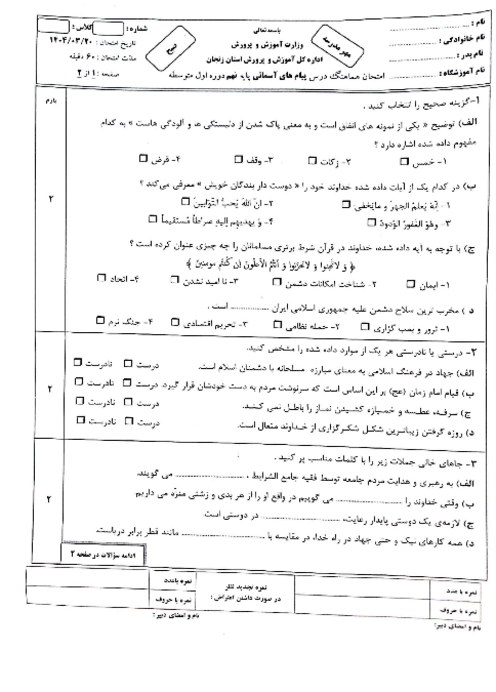 باسمه تعالی
وزارت آموزش و پرورش
اداره کل آموزش و پرورش استان زنجان
امتحان هماهنگ درس پیام های آسمانی پایه نهم دوره اول متوسطه
نام :
نام خانوادگی :
نام پدر :
نام آموزشگاه :
مهر مدرسه
صبح
شماره :
کلاس :
تاریخ امتحان : ۱۴۰۴/۰۳/۲۰
مدت امتحان : ۶۰ دقیقه
صفحه : ۱ از ۲
بارم
۱-گزینه صحیح را انتخاب کنید .
الف) توضیح « یکی از نمونه های انفاق است و به معنی پاک شدن از دلبستگی ها و آلودگی هاست » به کدام
مفهوم داده شده اشاره دارد ؟
۱- خمس ۲- زکات ۳- وقف ۴- قرض
ب) در کدام یک از آیات داده شده خداوند خود را « دوست دار بندگان خویش » معرفی می‌کند ؟
۱- إنَّهُ یَعلَمُ الجَهرَ و مایَخفی ۲- انَّ اللهَ یُحبُّ التَّوّابینَ
۳- وهُوَ الغَفورُ الوَدودُ ۴- و یَهدیهِم إلیهِ صراطاً مُستَقیماً
۲
ج) با توجه به آیه داده شده، خداوند در قرآن شرط برتری مسلمانان را چه چیزی عنوان کرده است ؟
﴿ وَ لا تَهِنوا وَ لا تَحزَنوا وَ أنتُمُ الأعلَونَ إن کُنتُم مومنینَ ﴾
۱- ایمان ۲- شناخت امکانات دشمن ۳- نا امید نشدن ۴- اتحاد
د ) مخرب ترین سلاح دشمن علیه جمهوری اسلامی ایران .................. است .
۱- ترور و بمب گزاری ۲- حمله نظامی ۳- تحریم اقتصادی ۴- جنگ نرم
۲- درستی یا نادرستی هر یک از موارد داده شده را مشخص کنید.
الف) جهاد در فرهنگ اسلامی به معنای مبارزه مسلحانه با دشمنان اسلام است. درست نادرست
ب) قیام امام زمان (عج) بر این اساس است که سرنوشت مردم به دست خودشان قرار گیرد. درست نادرست
ج) سرفه، عطسه و خمیازه کشیدن نماز را باطل نمی کند. درست نادرست
د) روزه گرفتن زیباترین شکل شکرگزاری از خداوند متعال است. درست نادرست
۲
۳- جاهای خالی جملات زیر را با کلمات مناسب پر کنید .
الف) به رهبری و هدایت مردم جامعه توسط فقیه جامع الشرایط ، .................. می گویند.
ب) وقتی خداوند را .................. می گوییم در واقع او را از هر بدی و زشتی منزه می داریم
ج) لازمه‌ی یک دوستی پایدار رعایت، .................. در دوستی است
د) همه کارهای نیک و حتی جهاد در راه خدا، در مقایسه با .................. مانند قطر برابر دریاست.
۲
ادامه سؤالات در صفحه ۲
نمره با عدد
نمره با حروف
نام و امضای دبیر :
نمره تجدید نظر
در صورت داشتن اعتراض :
نمره باعدد
نمره با حروف
نام و امضای دبیر :